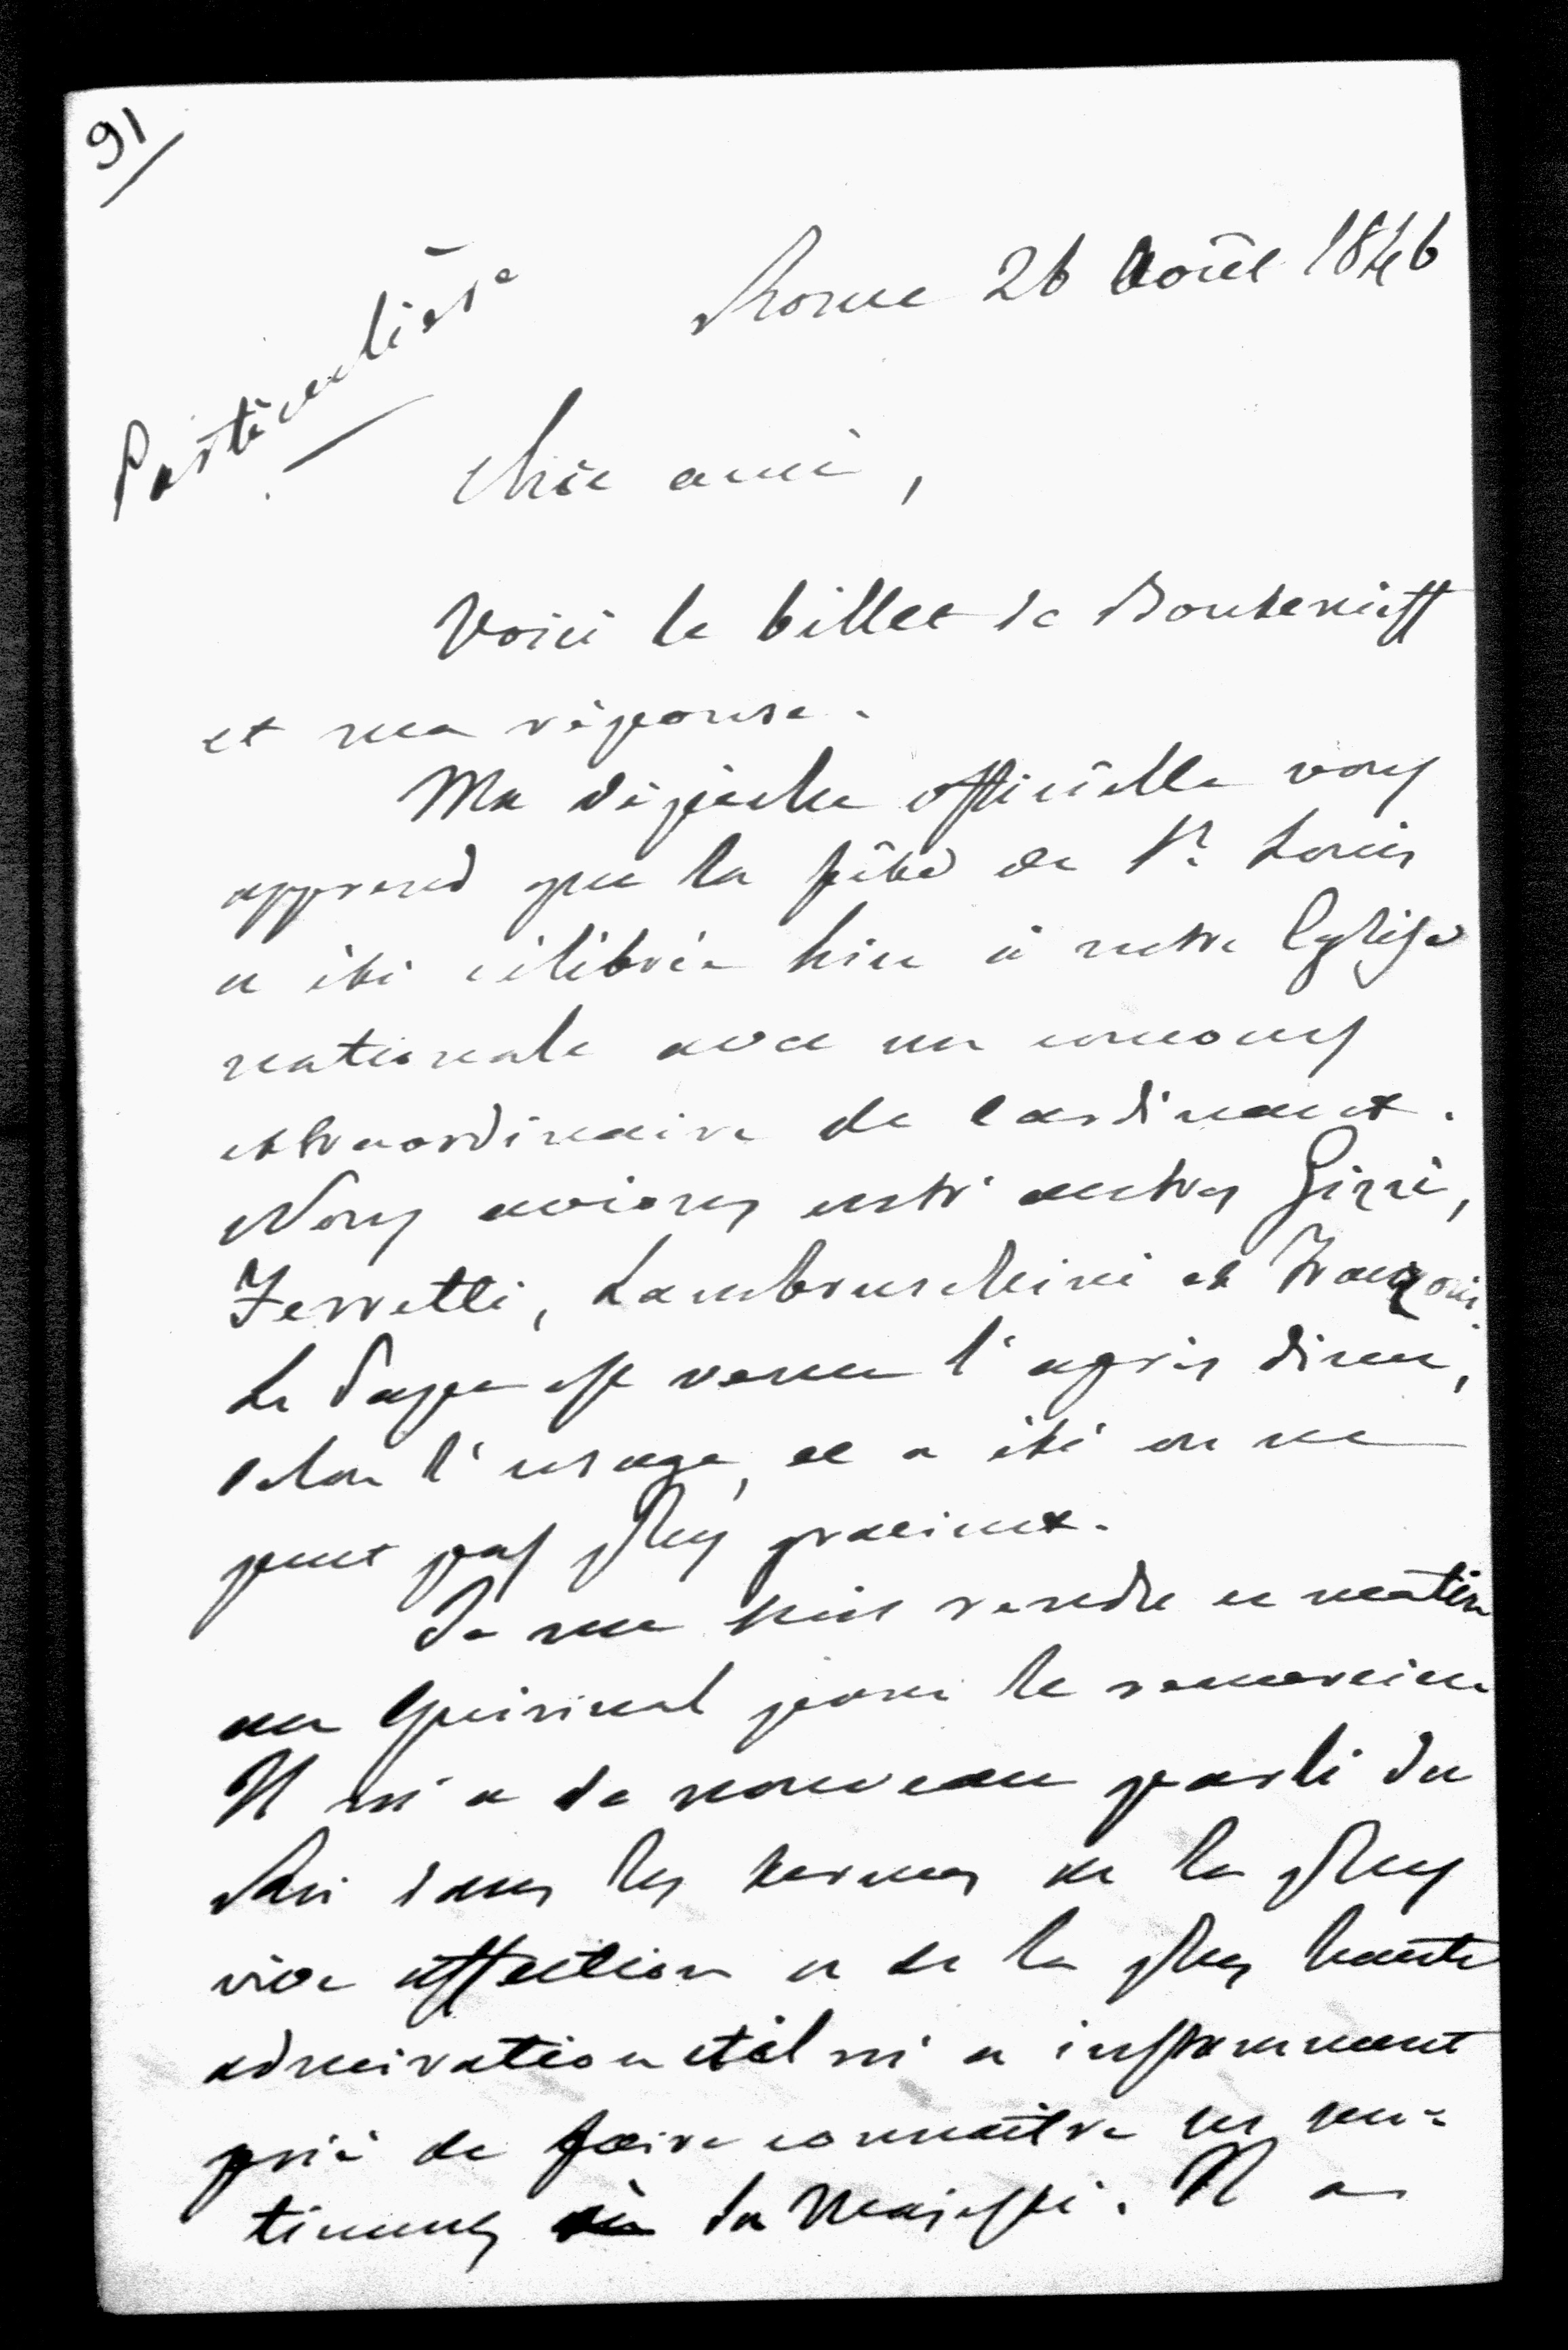 91
Rome 26 Août 1846
Particulière
Cher ami,
Voici le billet de Bouteneff
et ma réponse.
Ma dépêche officielle vous
apprend que la fête de St. Louis
a été célébrée hier à notre Eglise
nationale avec un concours
extraordinaire de Cardinaux.
Nous avions entr'autres Gizzi,
Ferretti, Lambruschini et Franzoni.
Le Pape est venu l'après diner,
selon l'usage, et a été on ne
peut pas plus gracieux.
Je me suis rendu ce matin
au Quirinal pour le remercier
Il m'a de nouveau parlé du
Roi dans les termes de la plus
vive affection et de la plus haute
admiration et il m'a instamment
prié de faire connaître ses sen-
timens à Sa Majesté. Il a